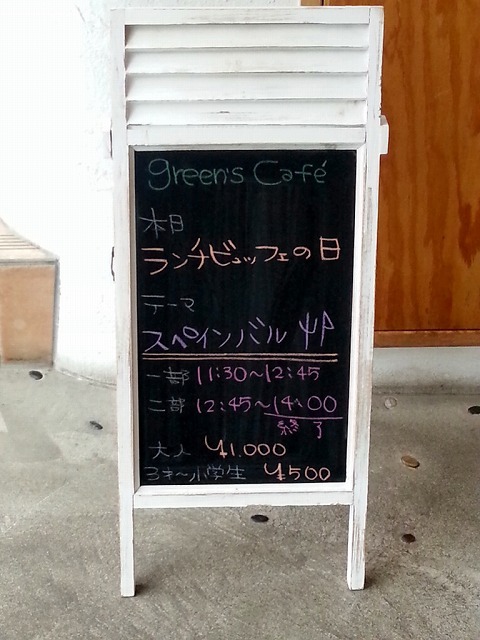 green's Café
本日
ランチビュッフェの日
テーマ
スペインバル
一部 11:30〜12:45
二部 12:45〜14:00
終了
大人 ¥1.000
3才〜小学生 ¥500